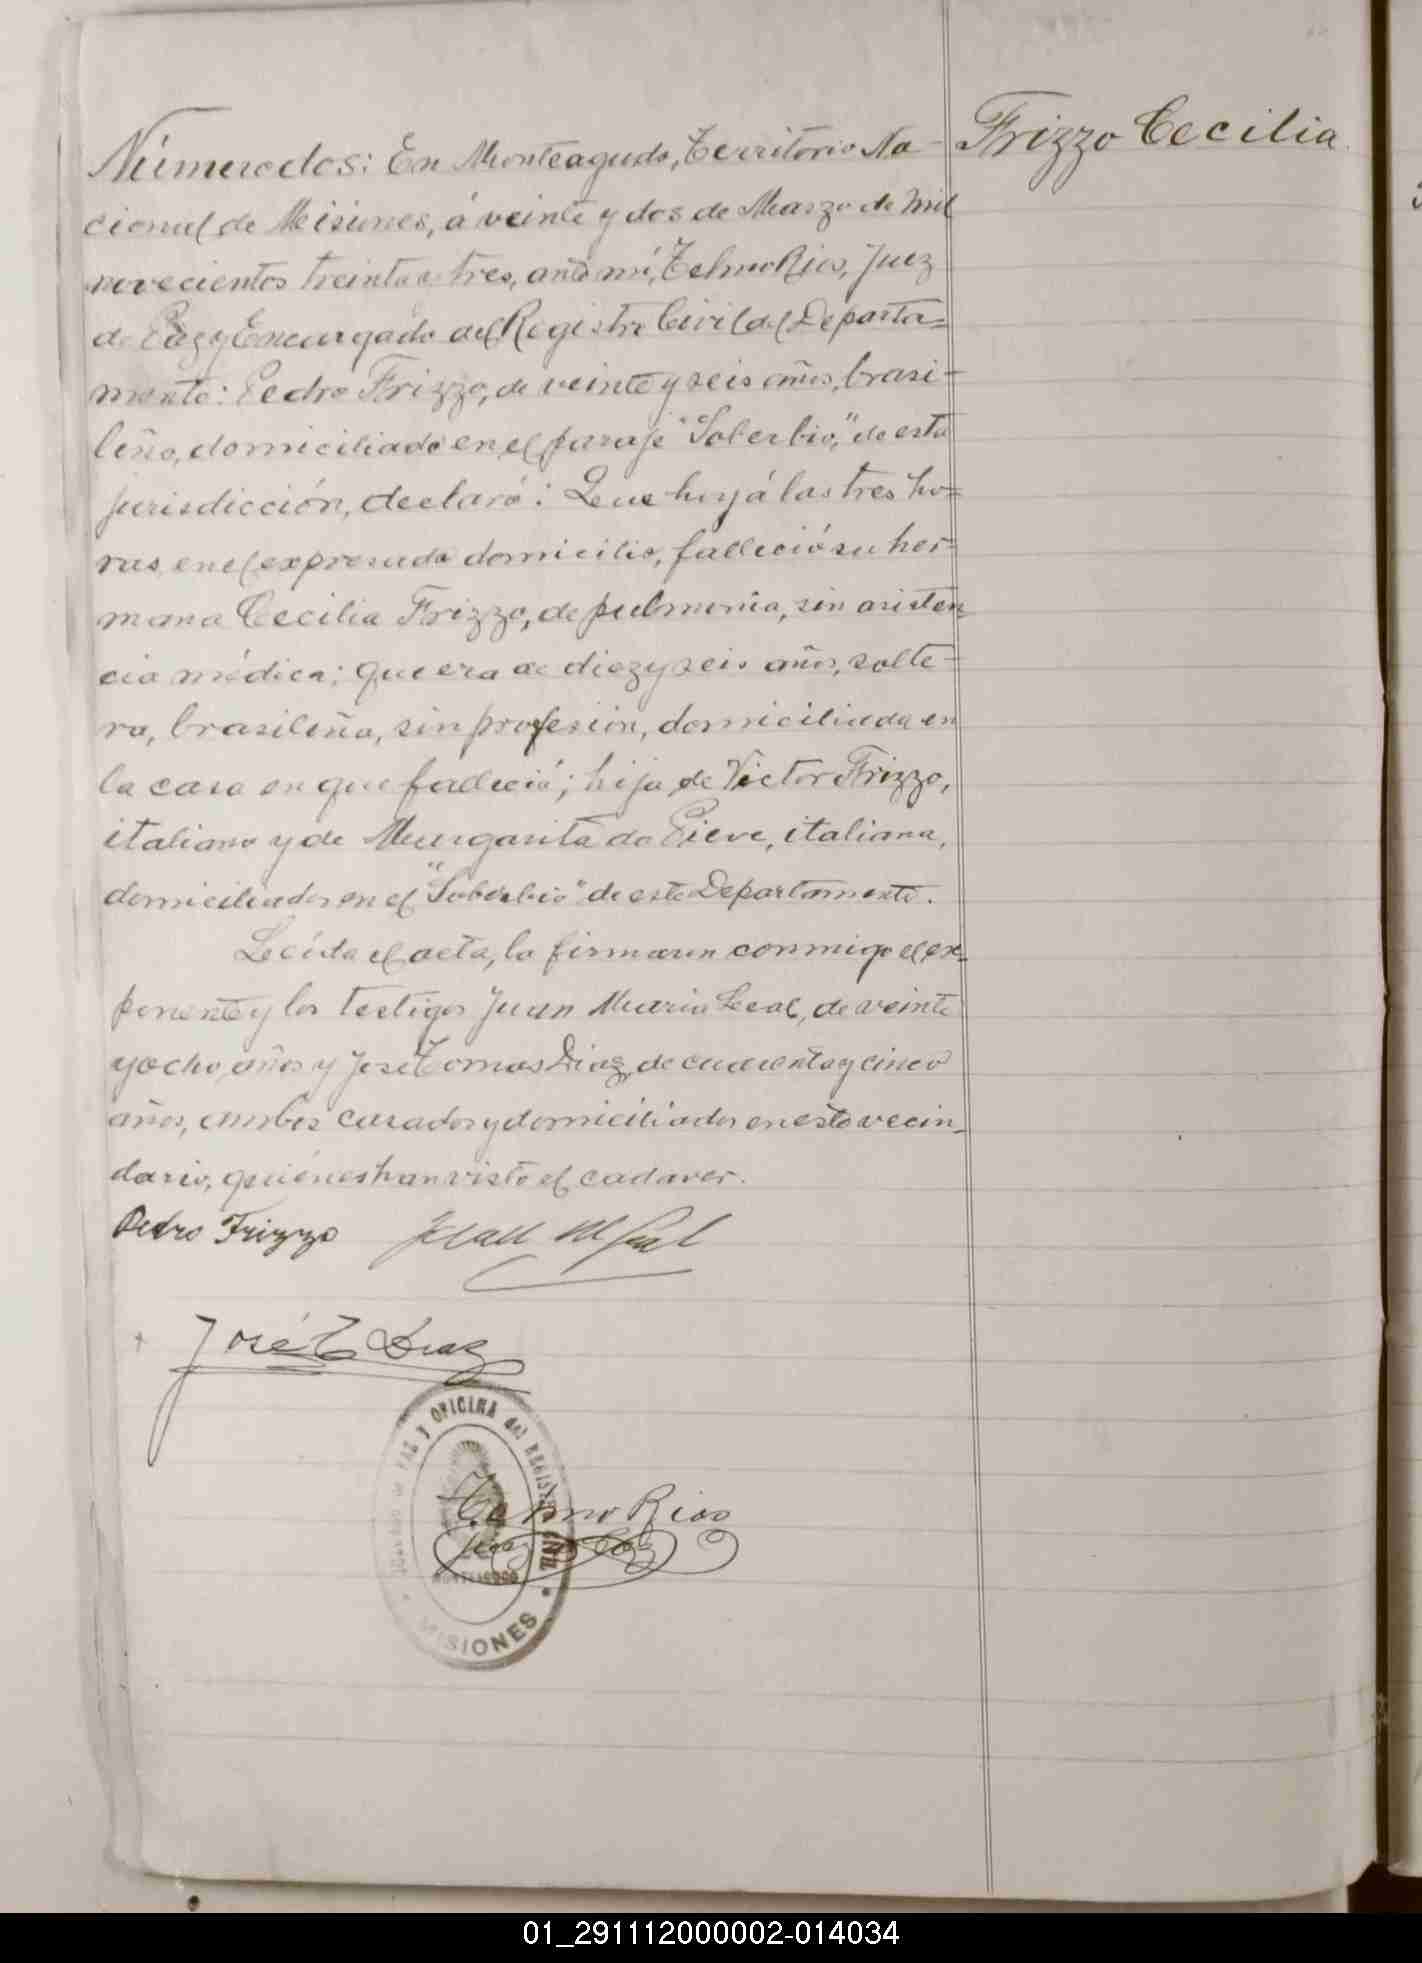 Frizzo Cecilia
Número dos: En Monteagudo, Territorio Na-
cional de Misiones, á veinte y dos de Marzo de mil
novecientos treinta y tres, ante mí, Telmo Rios, Juez
de Paz y Encargado del Registro Civil del Departa=
mento: Pedro Frizzo, de veinte y seis años, brasi-
leño, domiciliado en el paraje "Soberbio," de esta
jurisdicción, declaró: Que hoy á las tres ho=
ras, en el expresado domicilio, falleció su her=
mana Cecilia Frizzo, de pulmonia, sin asisten
cia médica; que era de diez y seis años, solte-
ra, brasileña, sin profesion, domiciliada en
la casa en que falleció; hija de Victor Frizzo,
italiano y de Margarita da Pieve, italiana,
domiciliados en el "Soberbio" de este Departamento.
Leída el acta, la firmaron conmigo el ex-
ponente y los testigos Juan Maria Leal, de veinte
y ocho años y José Tomas Diaz, de cuarenta y cinco
años, ambos casados y domiciliados en este vecin-
dario, quiénes han visto el cadaver.
Pedro Frizzo Juan M Leal
José T Diaz
JUZGADO DE PAZ Y OFICINA del REGISTRO CIVIL
Telmo Rios
Juez de Paz
MONTEAGUDO
MISIONES
01_291112000002-014034